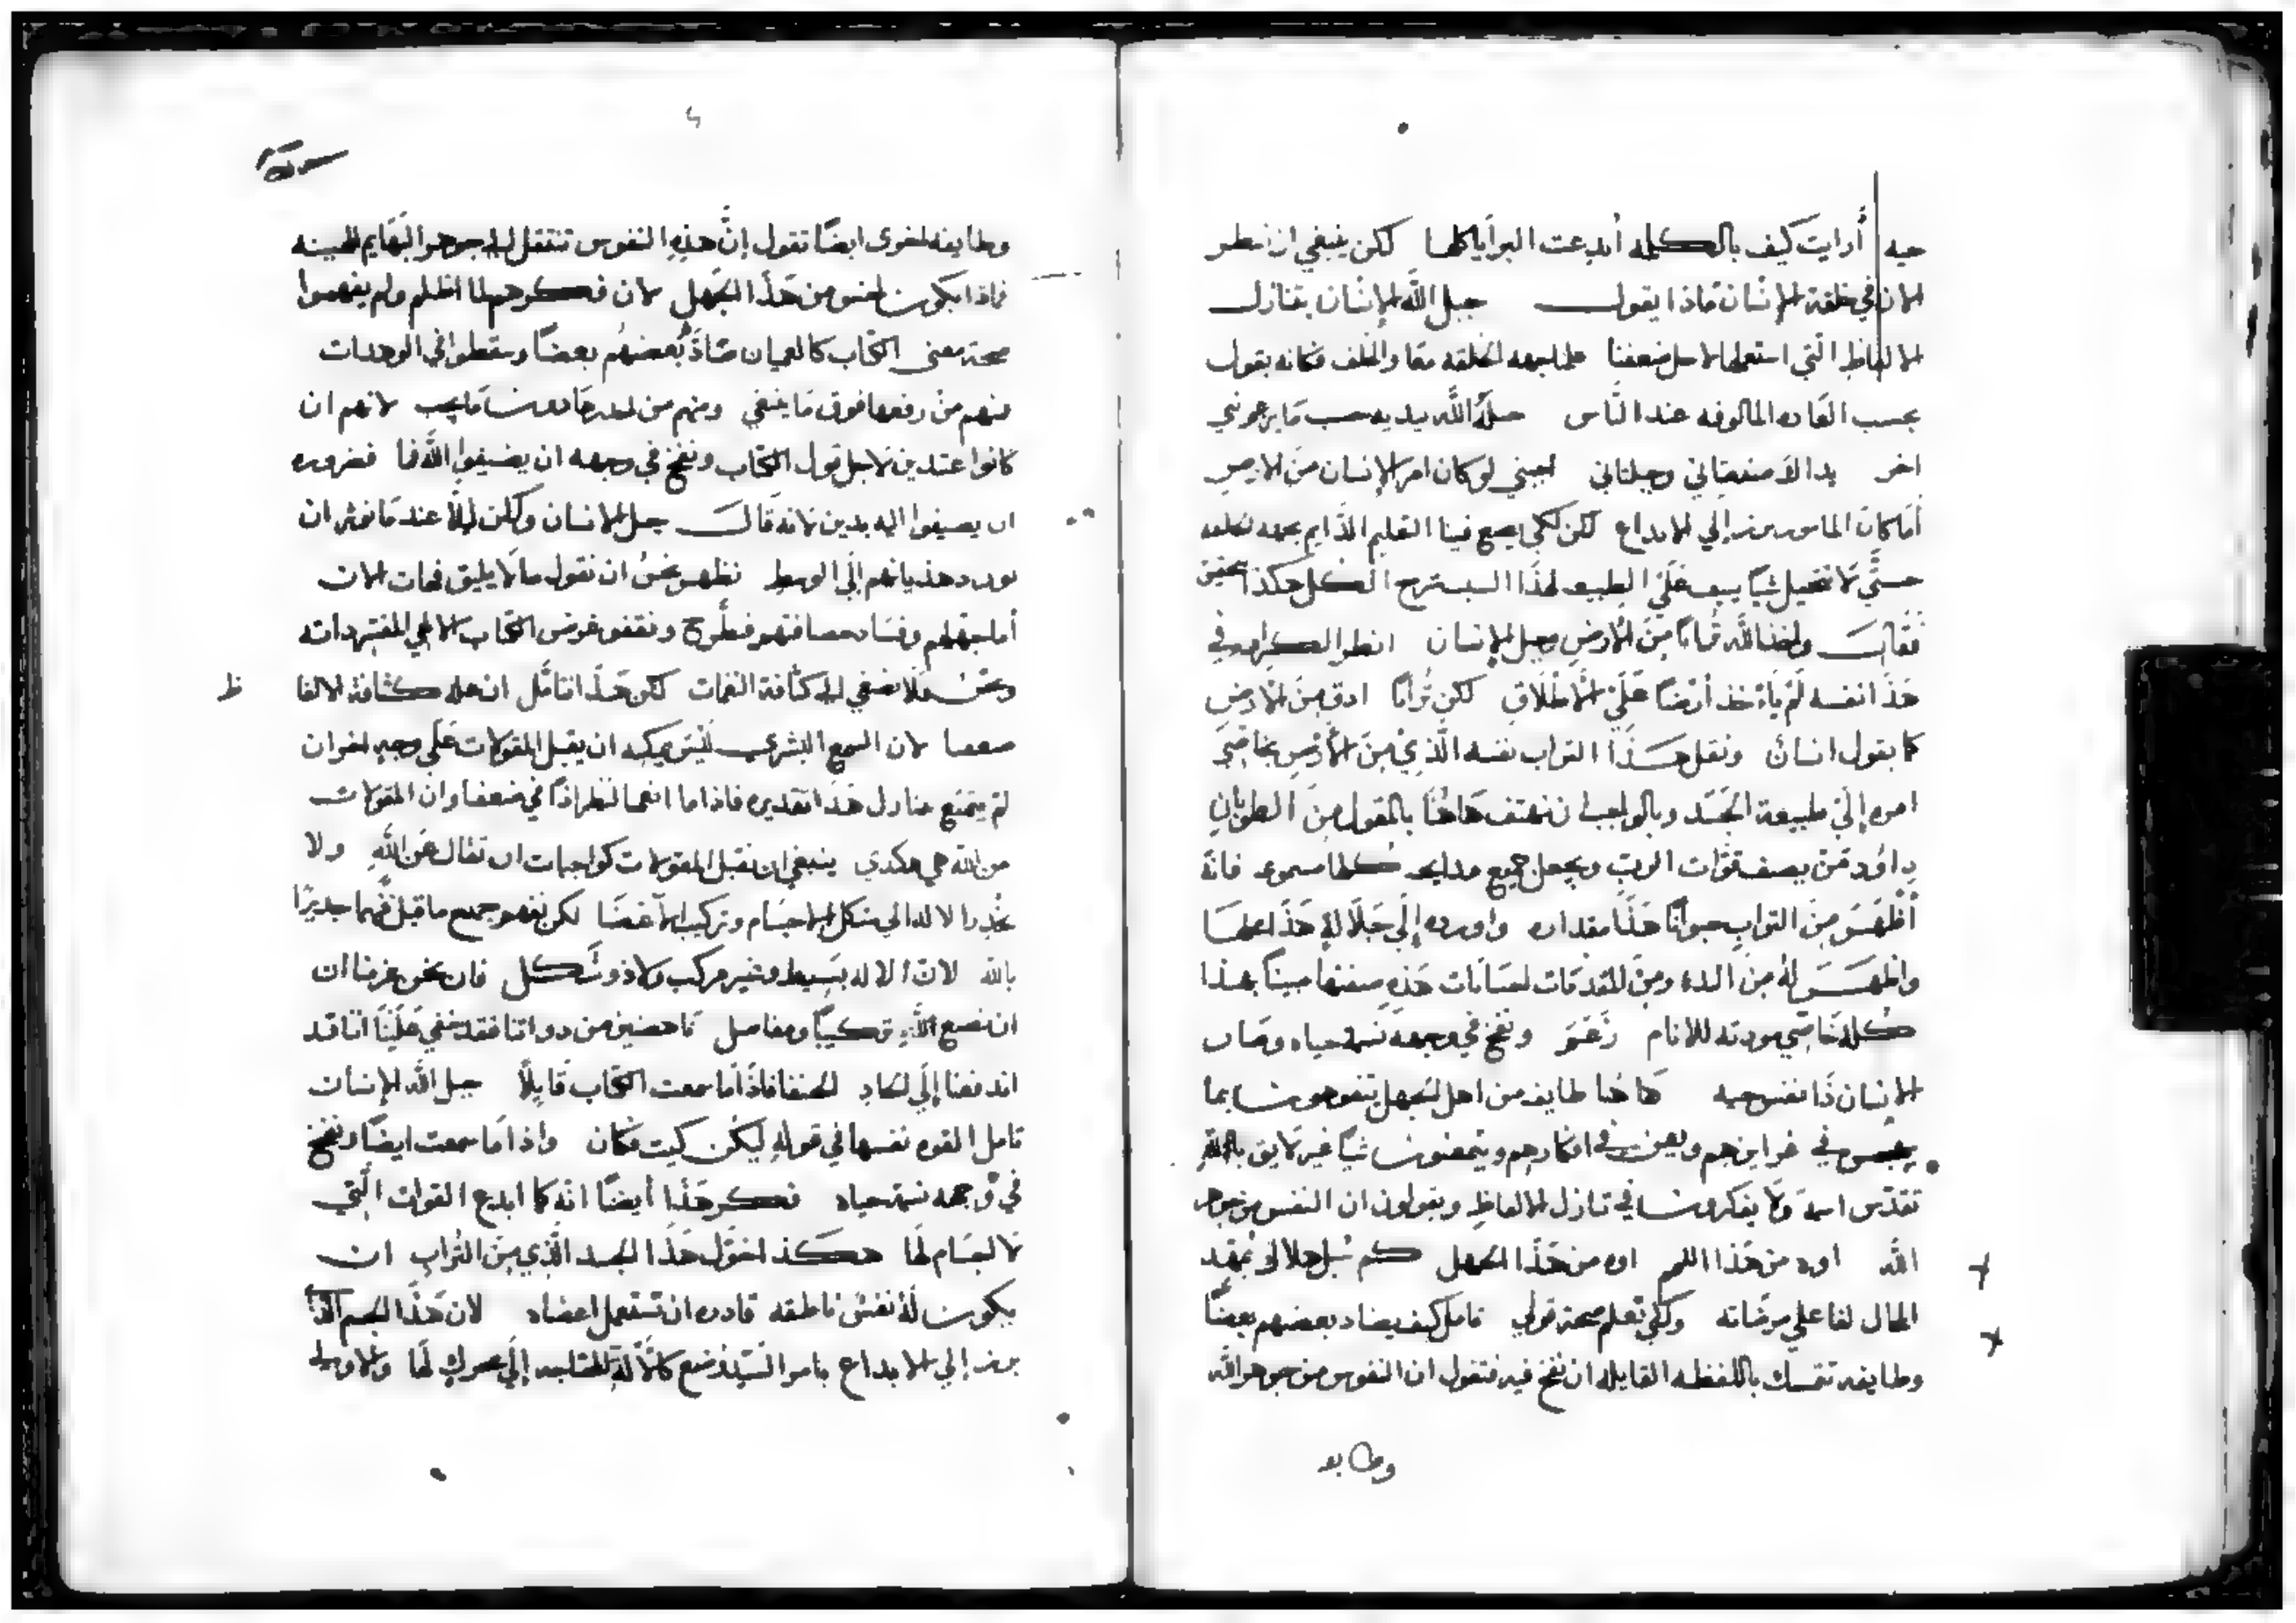 حيه أرايت كيف بالكلمه أبدعت البرايا كلها لكن ينبغي ان ننظر
الان في خلقة الإنسان فماذا يقول جبل الله الإنسان بتنازل
الالفاظ التي استعملها لاجل ضعفنا معا والخلف فكانه يقول
بحسب العاده المالوفه عند الناس الله بيديه حسب ما يزعم نبي
اخر يداك صنعتاني وجبلتاني اجبني لو كان امر الإنسان من الارض
أما كان المامور برز إلي الابداع لكن لكي يضع فينا التعليم الدايم بجهه الخلقه
حتي لا نتخيل شيًا علي الطبيعه لهذا السبب شرح الكل هكذا
فقال واخذ الله ترابًا من الأرض وجبل الإنسان انظر الكرامه في
هذا نفسه لم ياخذ أرضًا علي الأطلاق لكن ترابًا ادق من الأرض
كما يقول انسان ونقل هذا التراب نفسه الذي من الأرض بخاصة
امره إلي طبيعة الجسد وبالواجب ان نهتف هاهنا بالمقول من الطوباني
داود من يصف قوات الرب ويجعل جميع مدايحه كلها مسموعه فانة
أظهر من التراب حيوانًا هذا مقداره واورده إلي جلالة هذا عظمها
واظهر له من البدء ومن المقدمات احسانات هذه صفتها مبينًا بهذا
كله خاصة مودته للانام زعم ونفخ في وجهه نسمة حياه وصار
الإنسان ذا نفس حيه هاهنا طايفه من اهل الجهل يتفوهون بما
في غرايزهم في افكارهم ويتمخضون شيًا غير لايق بالله
تقدس اسمة ولا يفكرون في تنازل الالفاظ ويقولون ان النفس من جوهر
الله اوه من هذا اللمم اوه من هذا الجهل كم سُبل هلاك نهج
المحال لفاعلي مرضاته ولكي تعلم صحة قولي تامل كيف يضاد بعضهم بعضًا
وطايفه تتمسك باللفظه القايله ان نفخ فيه فتقول ان النفوس من جوهر الله
وطايفه
وطايفه اخرى ايضًا تقول إنَّ هذه النفوس تنتقل إلى جوهر البهايم المهينه
فماذا يكون اخس من هذا الجهل لان فكرهم لما اظلم ولم يفهموا
صحة معنى الكتاب كالعميان ضادَّ بعضهم بعضًا وسقطوا في الوهدات
فمنهم من رفعها فوق ما ينبغي ومنهم من احدرها دون ما يجب لانهم ان
كانوا عتيدين لاجل قول الكتاب ونفخ في وجهه ان يضيفوا الله فما فضروره
ان يضيفوا اليه يدين لانه قال جبل الإنسان ولكن ليلًا عندما نوثر ان
نورد هذيانهم إلي الوسط نظهر نحن ان نقول ما لا يليق فهات الان
أما جهلهم وفساد حصافتهم فنطَّرح ونقفوا غرض الكتاب الالهي المفسر ذاته
ونحن فلا نصغي إلى كثافة النغمات لكن هذا نتامَّل ان علة كثافة الالفاظ
ضعفنا لان السمع البشري ليس يمكنه ان يقبل المقولات علي وجه اخر ان
لم يتمتع بتنازل هذا تقديره فاذا ما انعمنا النظر اذًا في ضعفنا وان المقولات
من الله هي هكدي ينبغي ان نقبل المقولات كواجبات ان تقال عن الله ولا
نُحدر الاله الي شكل الاجسام وتركيب الأعضا لكن نفهم جميع ما قيل فهما جديرًا
بالله لان الاله بسيط وغير مركب ولا ذو شكل فان نحن عزمنا ان
ان نصنع لله تركيبًا ومفاصل ناهضين من دواتنا فقد خفي علينا اننا قد
اندفعنا إلي الحاد الحنفا فاذا ما سمعت الكتاب قايلًا جبل الله الإنسان
تامل القوه نفسها في قوله ليكن كيت فكان واذا ما سمعت ايضًا ونفخ
في وجهه نسمة حياه فكر هذا أيضًا انه كما ابدع القوات التي
لا اجسام لها هكذا خوَّل هذا الجسد الذي من التُراب ان
يكون له نفس ناطقه قادره ان تستعمل اعضاه لان هذا الجسم اذًا
برز إلي الابداع بامر السيد وُضع كالة محتاجه إلي محركٍ لها